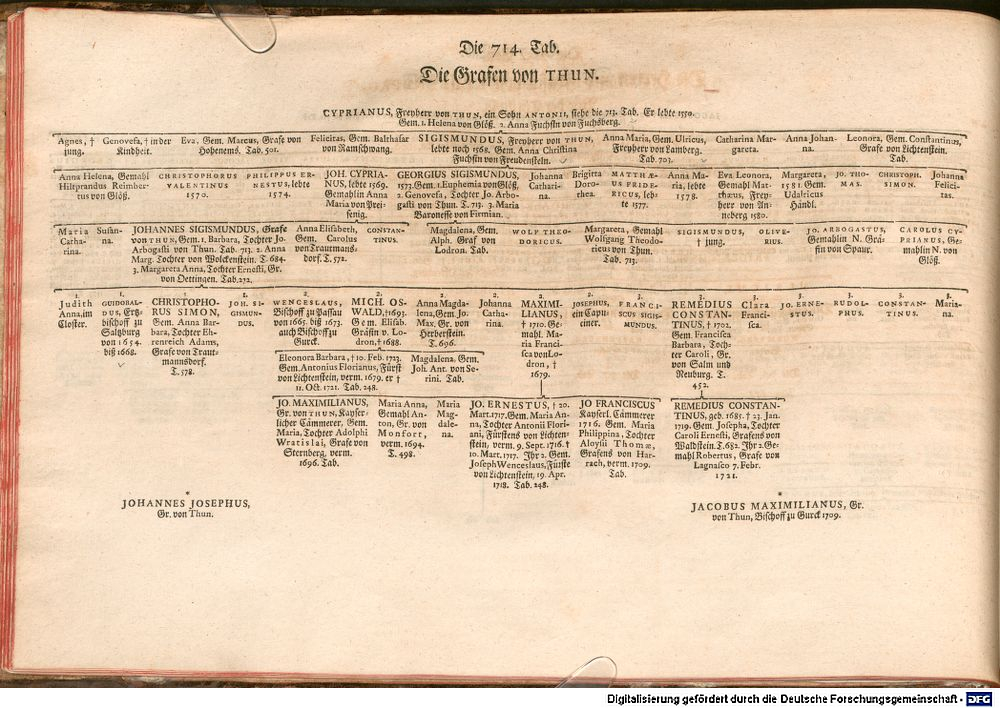 Die 714. Tab.
Die Grafen von THUN.
CYPRIANUS, Freyherr von THUN, ein Sohn ANTONII, siehe die 713. Tab. Er lebte 1550.
Gem. 1. Helena von Glöß. 2. Anna Fuchsin von Fuchsberg.
Agnes, †
jung.
Genovefa, † in der
Kindheit.
Eva, Gem. Marcus, Grafe von
Hohenems. Tab. 501.
Felicitas, Gem. Balthasar
von Ramschwang.
SIGISMUNDUS, Freyherr von THUN,
lebte noch 1568. Gem. Anna Christina
Fuchsin von Freudenstein.
Anna Maria, Gem. Ulricus,
Freyherr von Lamberg.
Tab. 703.
Catharina Mar-
gareta.
Anna Johan-
na.
Leonora, Gem. Constantinus,
Grafe von Lichtenstein.
Tab.
Anna Helena, Gemahl
Hiltprandus Reimber-
tus von Glöß.
CHRISTOPHORUS
VALENTINUS
1570.
PHILIPPUS ER-
NESTUS, lebte
1574.
JOH. CYPRIA-
NUS, lebte 1569.
Gemahlin Anna
Maria von Prei-
senig.
GEORGIUS SIGISMUNDUS,
1573. Gem. 1. Euphemia von Glöß,
2. Genovefa, Tochter Jo. Arbo-
gasti von Thun. T. 713. 3. Maria
Baronesse von Firmian.
Johanna
Cathari-
na.
Brigitta
Doro-
thea.
MATTHÆ-
US FRIDE-
RICUS, leb-
te 1577.
Anna Ma-
ria, lebte
1578.
Eva Leonora,
Gemahl Mat-
thæus, Frey-
herr von An-
neberg 1580.
Margareta,
1581. Gem.
Udalricus
Händl.
JO. THO-
MAS.
CHRISTOPH.
SIMON.
Johanna
Felici-
tas.
Maria
Catha-
rina.
Susan-
na.
JOHANNES SIGISMUNDUS, Grafe
von THUN, Gem. 1. Barbara, Tochter Jo.
Arbogasti von Thun. Tab. 713. 2. Anna
Marg. Tochter von Wolckenstein. T. 684.
3. Margareta Anna, Tochter Ernesti, Gr.
von Oettingen. Tab. 272.
Anna Elisabeth,
Gem. Carolus
von Trautmans-
dorf. T. 572.
CONSTAN-
TINUS.
Magdalena, Gem.
Alph. Graf von
Lodron. Tab.
WOLF THEO-
DORICUS.
Margareta, Gemahl
Wolfgang Theodo-
ricus von Thun.
Tab. 713.
SIGISMUNDUS,
† jung.
OLIVE-
RIUS.
JO. ARBOGASTUS,
Gemahlin N. Grä-
fin von Spaur.
CAROLUS CY-
PRIANUS, Ge-
mahlin N. von
Glöß.
1.
Judith
Anna, im
Closter.
1.
GUIDOBAL-
DUS, Ertz-
bischoff zu
Saltzburg
von 1654.
biß 1668.
1.
CHRISTOPHO-
RUS SIMON,
Gem. Anna Bar-
bara, Tochter Eh-
renreich Adams,
Grafe von Traut-
mannsdorf.
T. 578.
1.
JOH. SI-
GISMUN-
DUS.
2.
WENCESLAUS,
Bischoff zu Passau
von 1665. biß 1673.
auch Bischoff zu
Gurck.
2.
MICH. OS-
WALD, † 1693.
Gem. Elisab.
Gräfin v. Lo-
dron, † 1688.
2.
Anna Magda-
lena, Gem. Jo.
Max. Gr. von
Herberstein.
T. 696.
2.
Johanna
Catha-
rina.
2.
MAXIMI-
LIANUS,
† 1710. Ge-
mahl. Ma-
ria Franci-
sca von Lo-
dron, †
1679.
2.
JOSEPHUS,
ein Capu-
ciner.
3.
FRANCI-
SCUS SIGIS-
MUNDUS.
3.
REMEDIUS
CONSTAN-
TINUS, † 1702.
Gem. Francisca
Barbara, Toch-
ter Caroli, Gr.
von Salm und
Neuburg. T.
452.
3.
Clara
Franci-
sca.
3.
JO. ERNE-
STUS.
3.
RUDOL-
PHUS.
3.
CONSTAN-
TINUS.
3.
Maria-
na.
Eleonora Barbara, † 10. Febr. 1723.
Gem. Antonius Florianus, Fürst
von Lichtenstein, verm. 1679. er †
11. Oct. 1721. Tab. 248.
Magdalena, Gem.
Joh. Ant. von Se-
rini. Tab.
JO. MAXIMILIANUS,
Gr. von THUN, Kayser-
licher Cämmerer, Gem.
Maria, Tochter Adolphi
Wratislai, Grafe von
Sternberg, verm.
1696. Tab.
Maria Anna,
Gemahl An-
ton, Gr. von
Monfort,
verm. 1694.
T. 498.
Maria
Mag-
dale-
na.
JO. ERNESTUS, † 20.
Mart. 1717. Gem. Maria An-
na, Tochter Antonii Flori-
ani, Fürstens von Lichten-
stein, verm. 9. Sept. 1716. †
10. Mart. 1717. Ihr 2. Gem.
Joseph Wenceslaus, Fürste
von Lichtenstein, 19. Apr.
1718. Tab. 248.
JO FRANCISCUS
Kayserl. Cämmerer
1716. Gem. Maria
Philippina, Tochter
Aloysii Thomæ,
Grafens von Har-
rach, verm. 1709.
Tab.
REMEDIUS CONSTAN-
TINUS, geb. 1685. † 23. Jan.
1719. Gem. Josepha, Tochter
Caroli Ernesti, Grafens von
Waldstein. T. 652. Ihr 2. Ge-
mahl Robertus, Grafe von
Lagnasco 7. Febr.
1721.
*
JOHANNES JOSEPHUS,
Gr. von Thun.
*
JACOBUS MAXIMILIANUS, Gr.
von Thun, Bischoff zu Gurck 1709.
Digitalisierung gefördert durch die Deutsche Forschungsgemeinschaft - DFG